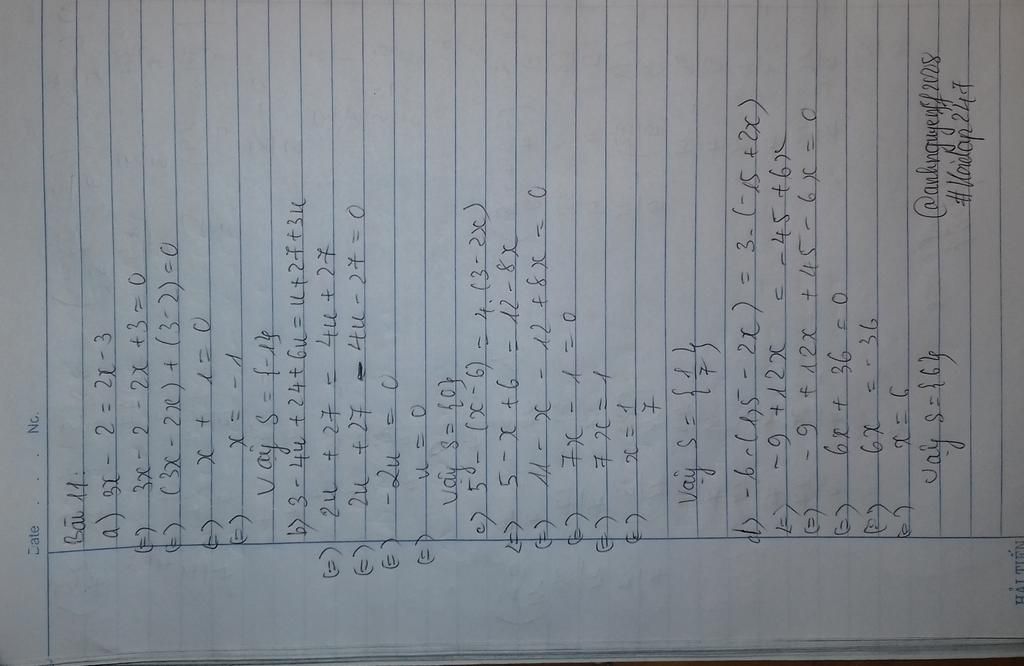 Date . . . . No.
Bài 11:
a) 3x - 2 = 2x - 3
(=) 3x - 2 - 2x + 3 = 0
(=) (3x - 2x) + (3 - 2) = 0
(=) x + 1 = 0
(=) x = -1
Vậy S = {-1}
b) 3 - 4u + 24 + 6u = u + 27 + 3u
(=) 2u + 27 = 4u + 27
(=) 2u + 27 - 4u - 27 = 0
(=) -2u = 0
(=) u = 0
Vậy S = {0}
c) 5 - (x - 6) = 4.(3 - 2x)
(=) 5 - x + 6 = 12 - 8x
(=) 11 - x - 12 + 8x = 0
(=) 7x - 1 = 0
(=) 7x = 1
(=) x = 1/7
Vậy S = {1/7}
d) -6.(1,5 - 2x) = 3.(-15 + 2x)
(=) -9 + 12x = -45 + 6x
(=) -9 + 12x + 45 - 6x = 0
(=) 6x + 36 = 0
(=) 6x = -36
(=) x = 6
Vậy S = {6}
#Hoidap247
HẢI TIẾN